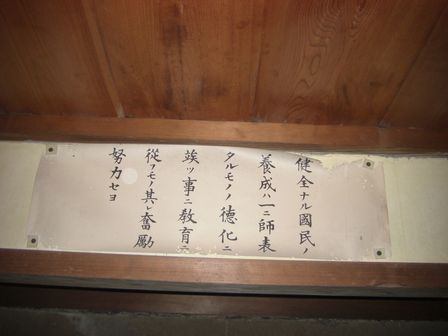 健全ナル國民ノ
養成ハ一ニ師表
タルモノノ德化ニ
竢ツ事ニ敎育ニ
從フモノ其レ奮勵
努力セヨ